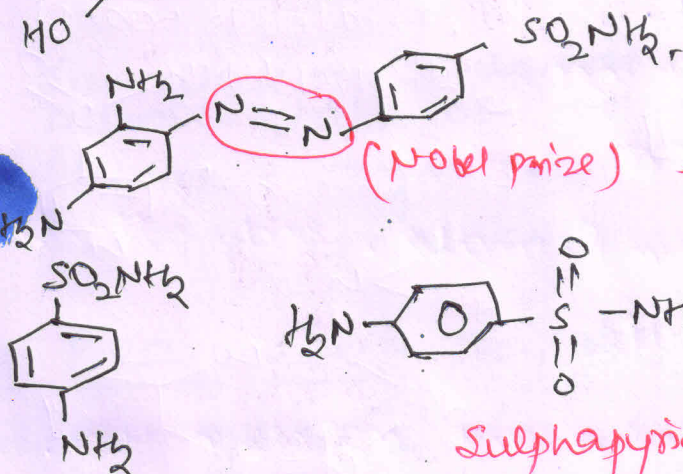 HO
SO2NH2.
NH2
N=N
(Nobel prize)
H2N
SO2NH2
O
H2N
S
-NH
O
NH2
Sulphapyri